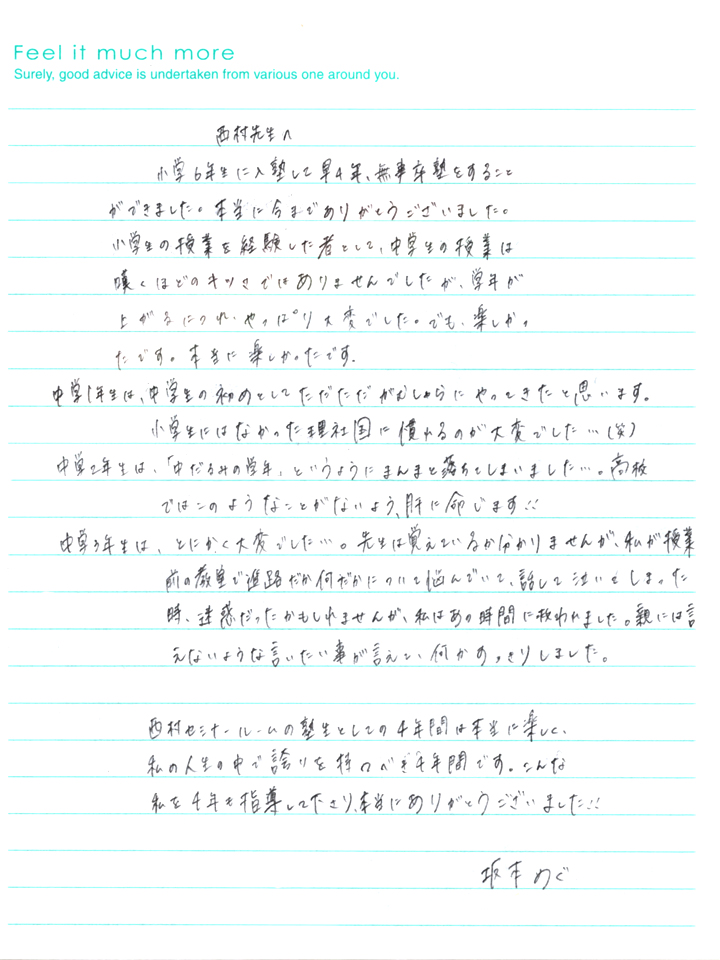 Feel it much more
Surely, good advice is undertaken from various one around you.
西村先生へ
小学6年生に入塾して早4年、無事卒塾をすること
ができました。本当に今までありがとうございました。
小学生の授業を経験した者として、中学生の授業は
嘆くほどのキツさではありませんでしたが、学年が
上がるにつれ、やっぱり大変でした。でも、楽しかっ
たです。本当に楽しかったです。
中学1年生は、中学生の初めとしてただただがむしゃらにやってきたと思います。
小学生にはなかった理社国に慣れるのが大変でした…(笑)
中学2年生は、「中だるみの学年」というようにまんまと落ちてしまいました…。高校
ではこのようなことがないよう、肝に命じます!!
中学3年生は、とにかく大変でした…。先生は覚えているか分かりませんが、私が授業
前の教室で進路だか何だかについて悩んでいて、話して泣いてしまった
時、迷惑だったかもしれませんが、私はあの時間に救われました。親には言
えないような言いたい事が言えて、何かすっきりしました。
西村セミナールームの塾生としての4年間は本当に楽しく、
私の人生の中で誇りを持つべき4年間です。こんな
私を4年も指導して下さり、本当にありがとうございました!!
坂本めぐ